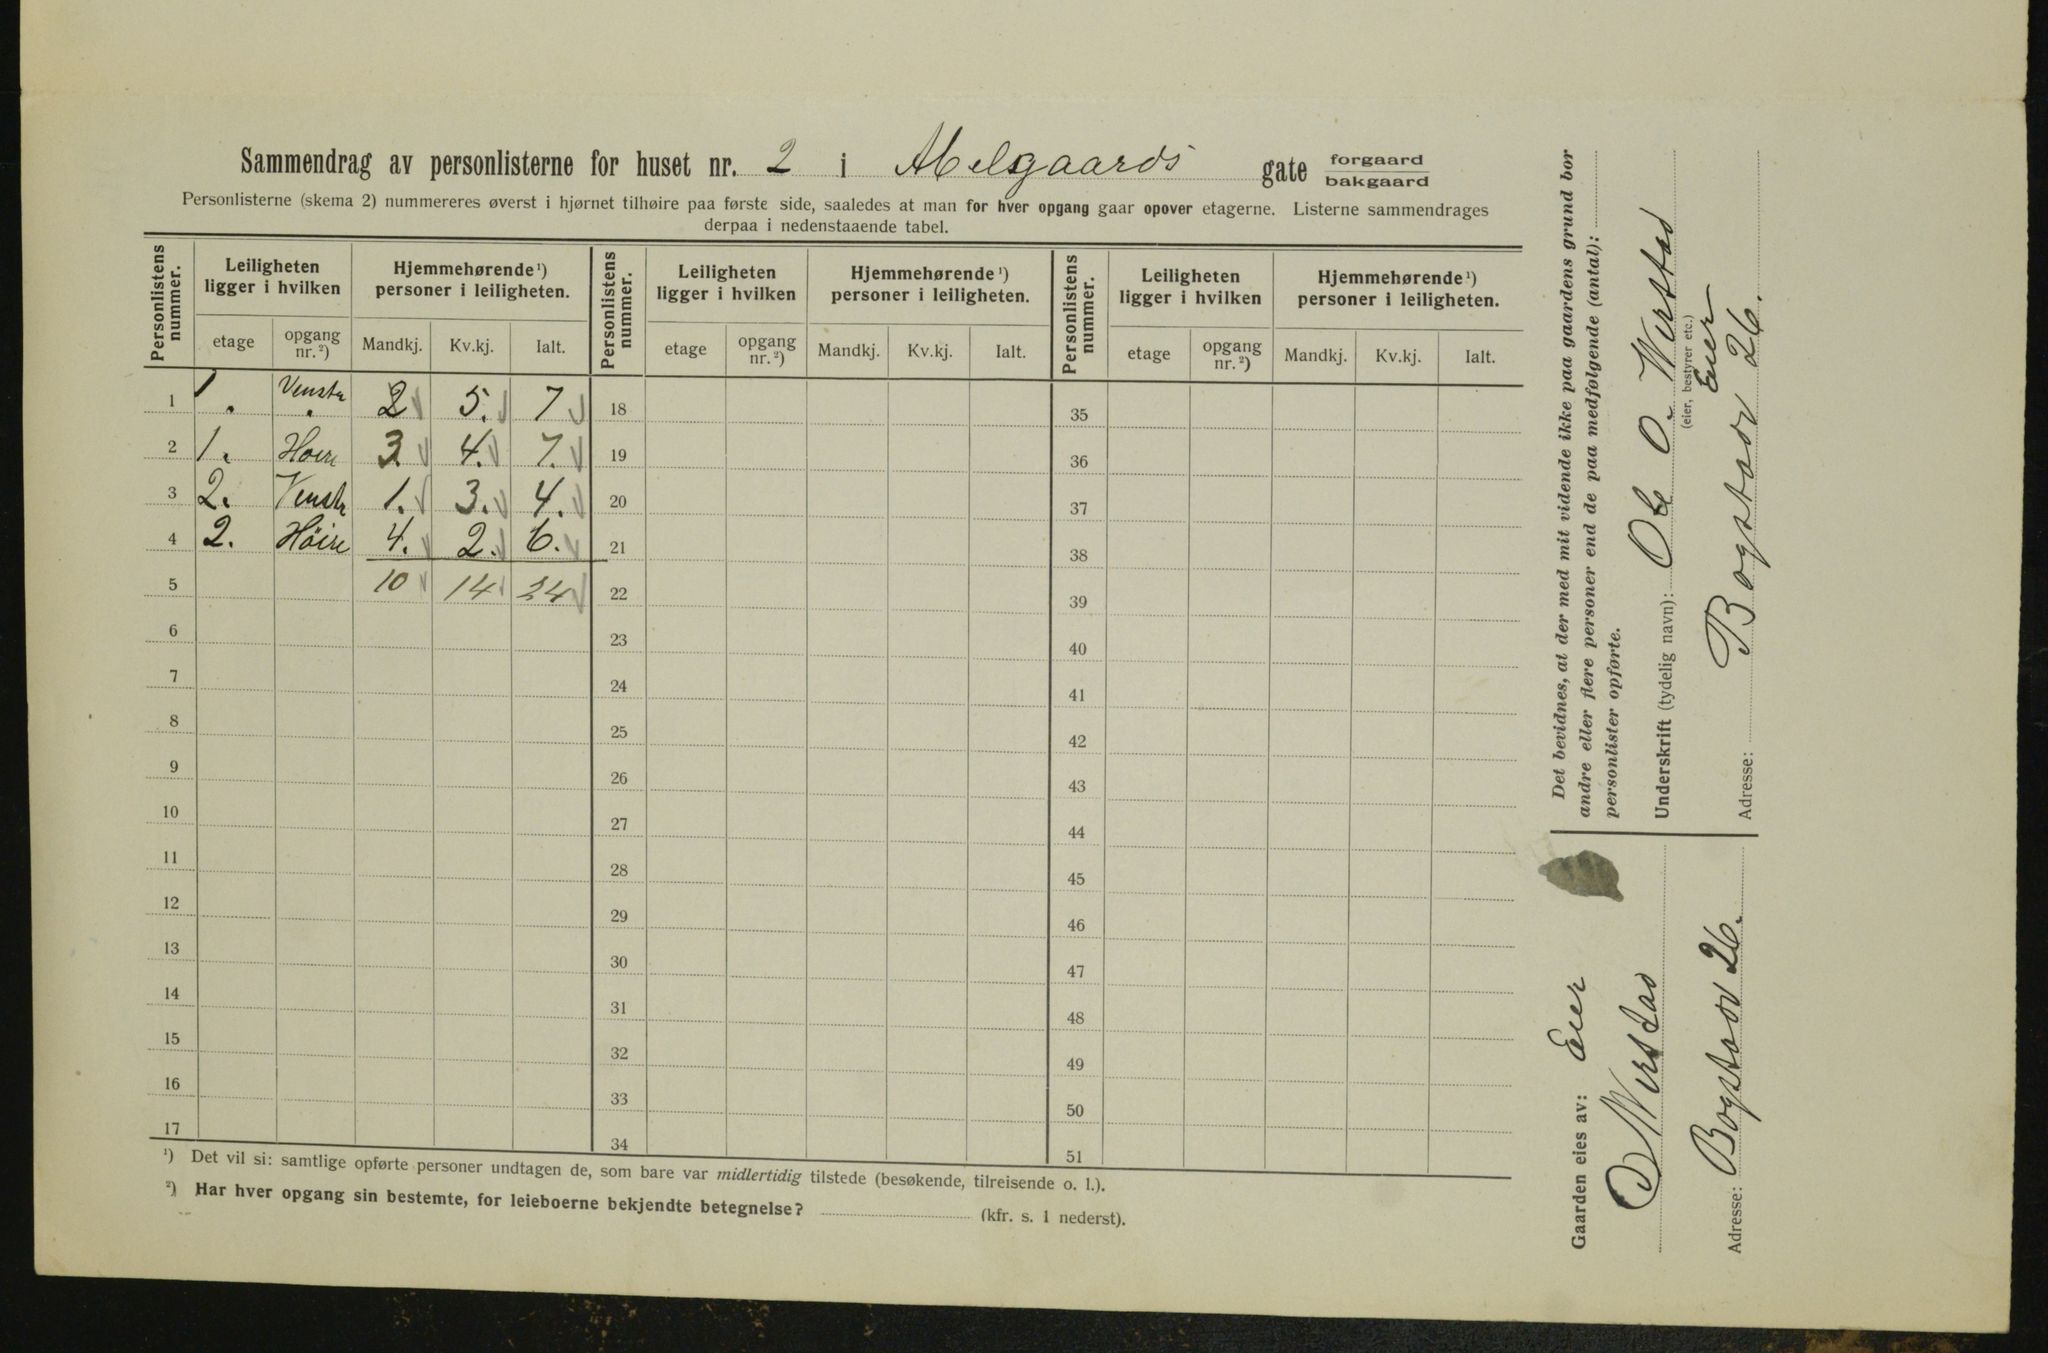 Sammendrag av personlisterne for huset nr. 2 i Abelsgaards gate forgaard bakgaard
Personlisterne (skema 2) nummereres øverst i hjørnet tilhøire paa første side, saaledes at man for hver opgang gaar opover etagerne. Listerne sammendrages
derpaa i nedenstaaende tabel.
Personlistens nummer. Leiligheten ligger i hvilken Hjemmehørende¹) personer i leiligheten. Personlistens nummer. Leiligheten ligger i hvilken Hjemmehørende¹) personer i leiligheten. Personlistens nummer. Leiligheten ligger i hvilken Hjemmehørende¹) personer i leiligheten.
etage opgang nr.²) Mandkj. Kv.kj. Ialt. etage opgang nr.²) Mandkj. Kv.kj. Ialt. etage opgang nr.²) Mandkj. Kv.kj. Ialt.
1 1. Venstr. 2 5. 7 18 35
2 1. Hoire 3. 4. 7. 19 36
3 2. Venstr 1. 3. 4. 20 37
4 2. Höire 4. 2. 6. 21 38
5 10 14 24 22 39
6 23 40
7 24 41
8 25 42
9 26 43
10 27 44
11 28 45
12 29 46
13 30 47
14 31 48
15 32 49
16 33 50
17 34 51
¹) Det vil si: samtlige opførte personer undtagen de, som bare var midlertidig tilstede (besøkende, tilreisende o. l.).
²) Har hver opgang sin bestemte, for leieboerne bekjendte betegnelse? (kfr. s. 1 nederst).
Det bevidnes, at der med mit vidende ikke paa gaardens grund bor
andre eller flere personer end de paa medfølgende (antal):
personlister opførte.
Underskrift (tydelig navn): Ole O. Wirstad
(eier, bestyrer etc.)
Eier
Adresse: Bogstadv 26.
Gaarden eies av: Eier
O Wirstad
Adresse: Bogstadv 26.